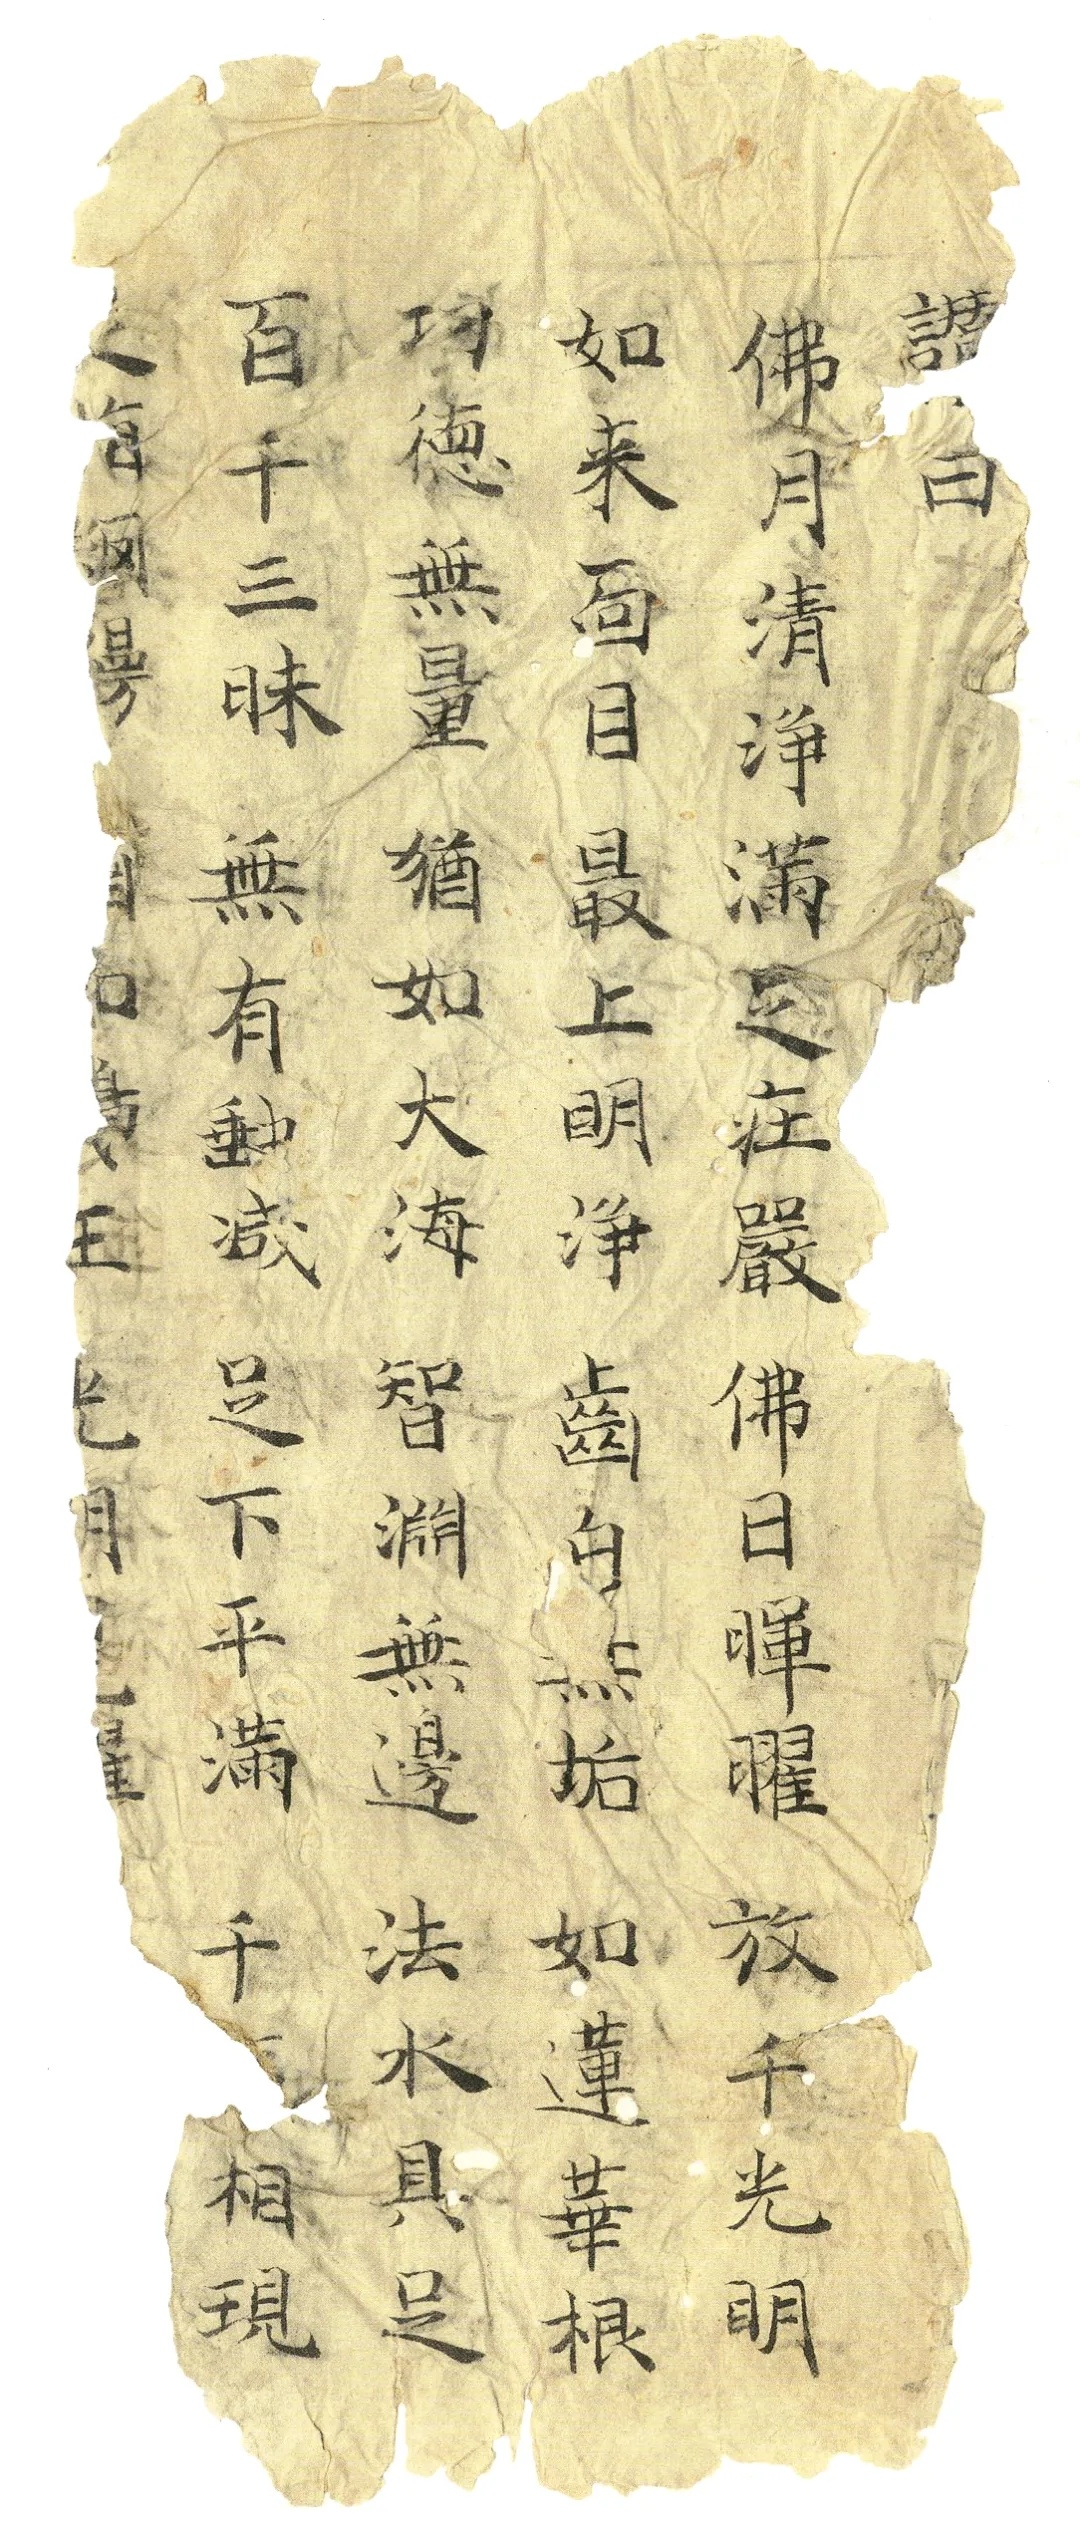 曰
佛月清淨滿足庄嚴 佛日暉曜 放千光明
如来面目 最上明淨 齒白無垢 如蓮華根
功德無量 猶如大海 智淵無邊 法水具足
百千三昧 無有缺減 足下平滿 千相現
足指網縵 猶如鵝王 光明曜